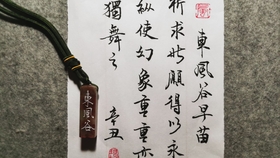 東風谷早苗
祈求此願得以永
縱使幻象重重亦
獨舞之 辛丑
東風谷